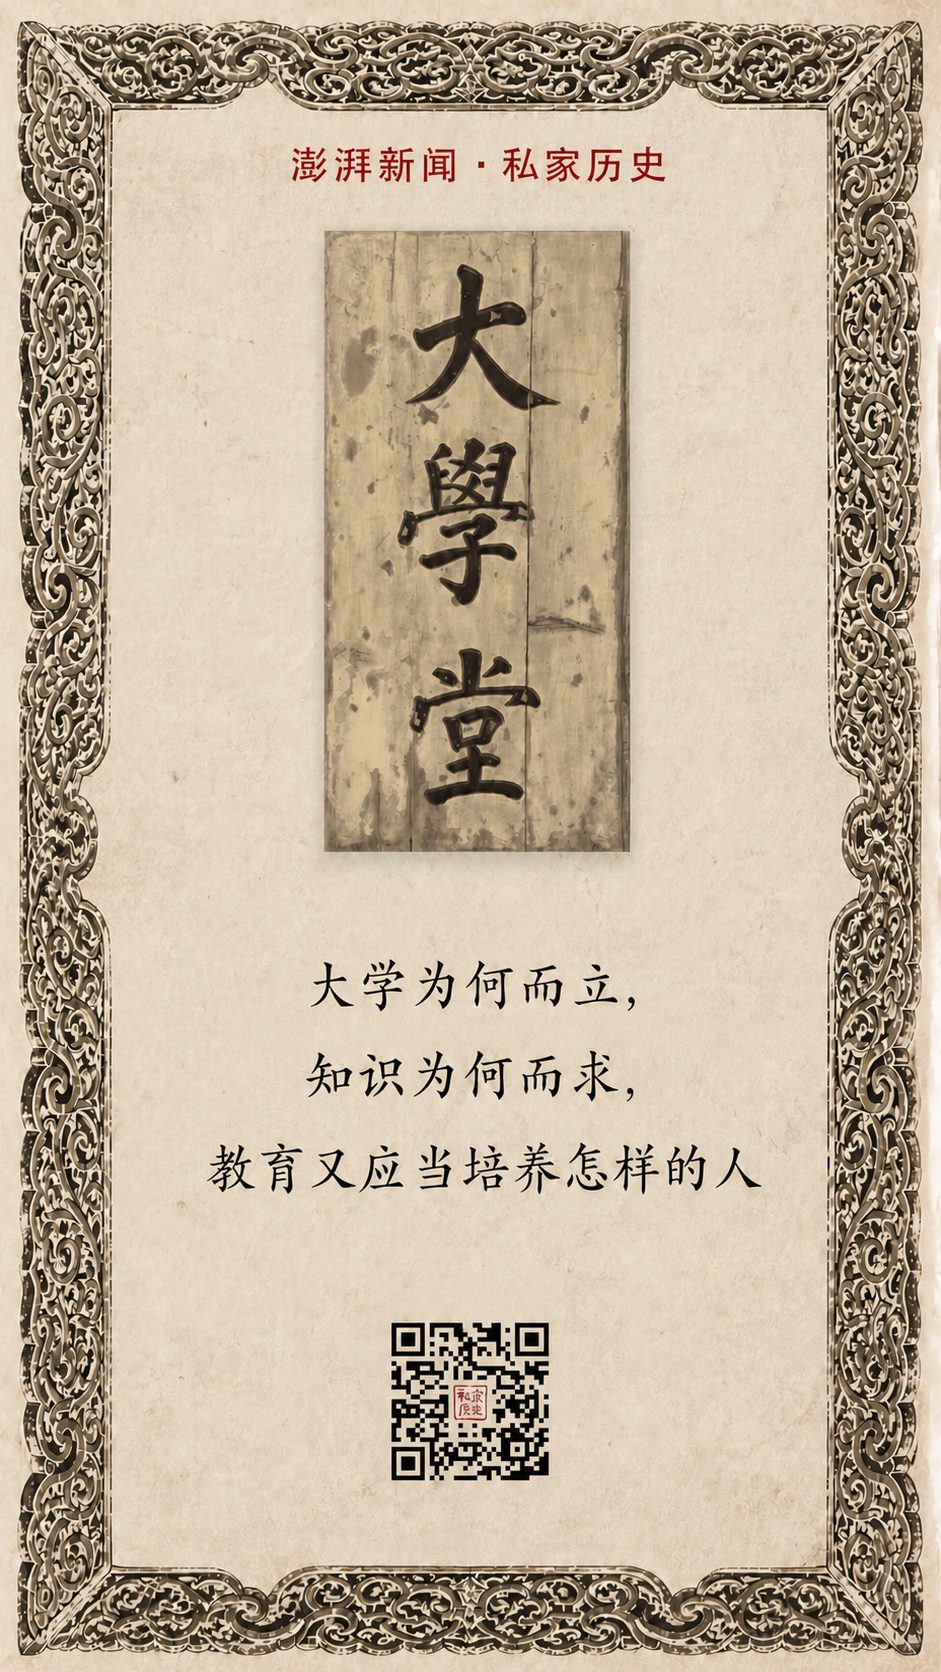 澎湃新闻·私家历史
大學堂
大学为何而立，
知识为何而求，
教育又应当培养怎样的人
私家历史